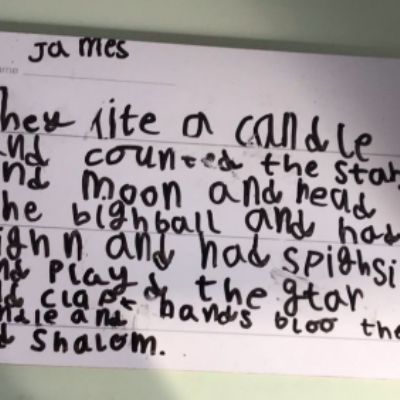 James
ame
hey lite a candle
nd counted the star
nd moon and head
he bighball and had
ighn n and had spighsi
nd playd the gtar
d clapt
ndle and hands bloo the
d shalom.